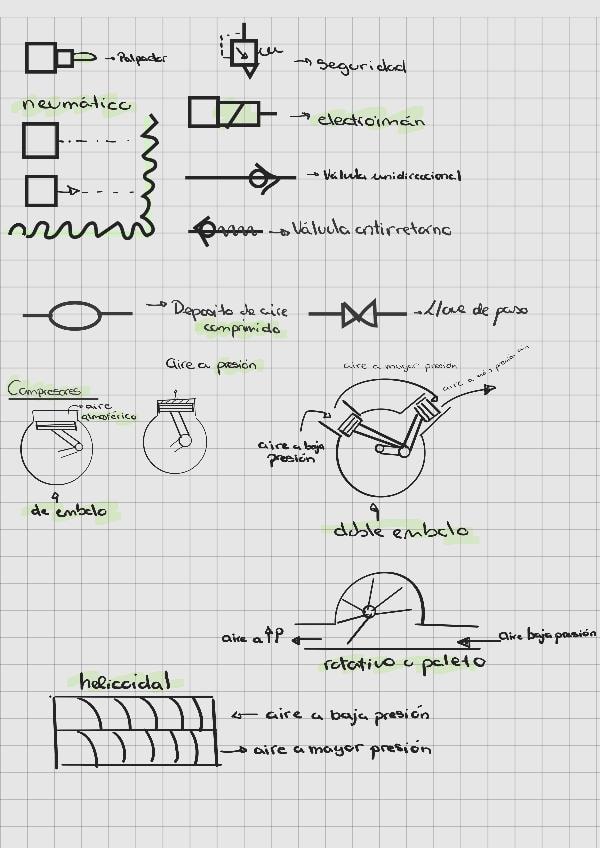 Palpador
Seguridad
neumático
electroimán
Válvula unidireccional
Válvula antirretorno
Deposito de aire
comprimido
Llave de paso
Aire a presión
aire a mayor presión
Compresores
aire
atmosférico
aire a baja
presión
de embolo
doble embolo
aire a ↑P
aire baja presión
rotativo o paleto
helicoidal
aire a baja presión
aire a mayor presión